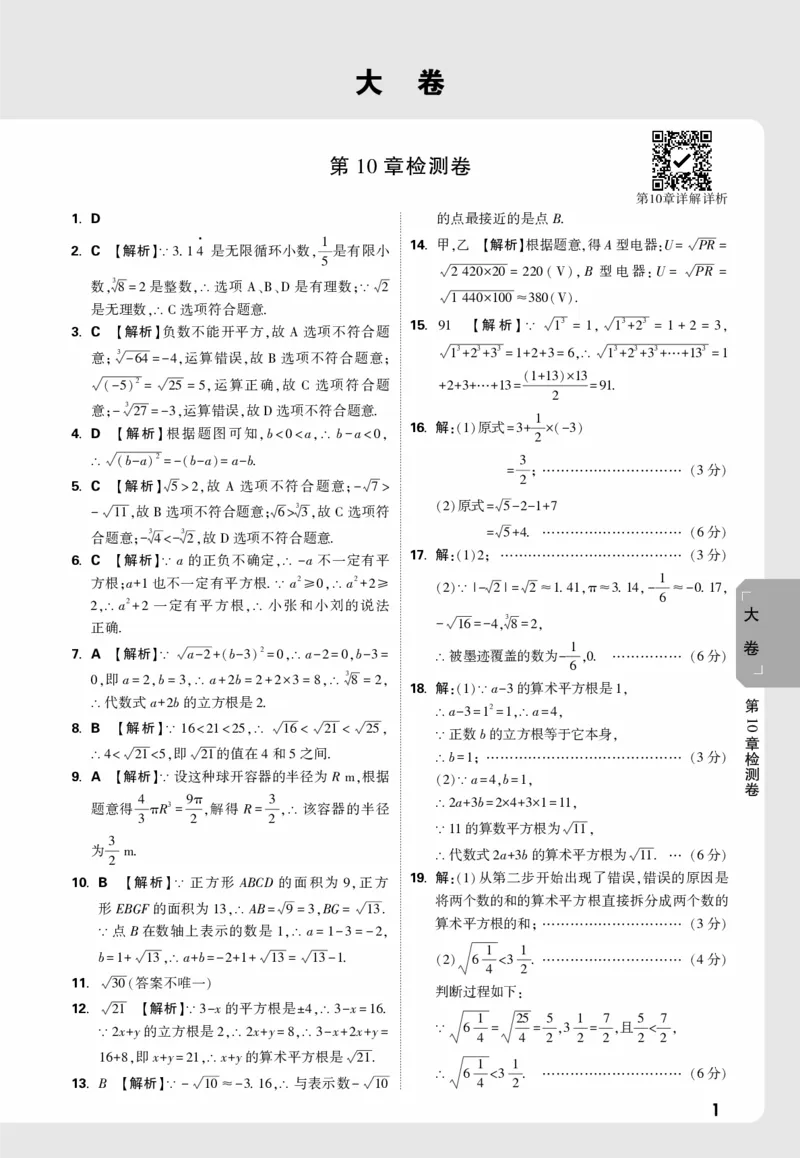 大 卷
第 10 章检测卷
第10章详解详析
1. D
2. C 【解析】∵3.14̇ 是无限循环小数,1/5 是有限小
数,∛8=2是整数,∴选项 A、B、D 是有理数;∵√2
是无理数,∴C选项符合题意.
3. C 【解析】负数不能开平方,故 A 选项不符合题
意;∛-64=-4,运算错误,故 B 选项不符合题意;
√(-5)²=√25=5,运算正确,故 C 选项符合题
意;-∛27=-3,运算错误,故D选项不符合题意.
4. D 【解析】根据题图可知,b<0<a,∴b-a<0,
∴√(b-a)²=-(b-a)=a-b.
5. C 【解析】√5>2,故 A 选项不符合题意;-√7>
-√11,故B选项不符合题意;√6>∛3,故C选项符
合题意;-∛4<-∛2,故D选项不符合题意.
6. C 【解析】∵a 的正负不确定,∴-a 不一定有平
方根;a+1也不一定有平方根.∵a²≥0,∴a²+2≥
2,∴a²+2 一定有平方根,∴小张和小刘的说法
正确.
7. A 【解析】∵√a-2+(b-3)²=0,∴a-2=0,b-3=
0,即a=2,b=3,∴a+2b=2+2×3=8,∴∛8=2,
∴代数式 a+2b 的立方根是2.
8. B 【解析】∵16<21<25,∴√16<√21<√25,
∴4<√21<5,即√21的值在4和5之间.
9. A 【解析】∵设这种球开容器的半径为 R m,根据
题意得 4/3 πR³=9π/2,解得 R=3/2,∴该容器的半径
为 3/2 m.
10. B 【解析】∵正方形 ABCD 的面积为 9,正方
形 EBGF 的面积为 13,∴AB=√9=3,BG=√13.
∵点 B 在数轴上表示的数是 1,∴a=1-3=-2,
b=1+√13,∴a+b=-2+1+√13=√13-1.
11. √30(答案不唯一)
12. √21 【解析】∵3-x的平方根是±4,∴3-x=16.
∵2x+y的立方根是2,∴2x+y=8,∴3-x+2x+y=
16+8,即x+y=21,∴x+y的算术平方根是√21.
13. B 【解析】∵-√10≈-3.16,∴与表示数-√10
的点最接近的是点 B.
14. 甲,乙 【解析】根据题意,得A型电器:U=√PR=
√2 420×20=220(V),B 型电器:U=√PR=
√1 440×100≈380(V).
15. 91 【解析】∵√1³=1,√1³+2³=1+2=3,
√1³+2³+3³=1+2+3=6,∴√1³+2³+3³+…+13³=1
+2+3+…+13=(1+13)×13/2=91.
16. 解:(1)原式=3+1/2×(-3)
=3/2;………………………… (3分)
(2)原式=√5-2-1+7
=√5+4. ………………………… (6分)
17. 解:(1)2; ……………………………… (3分)
(2)∵|-√2|=√2≈1.41,π≈3.14,-1/6≈-0.17,
-√16=-4,∛8=2,
∴被墨迹覆盖的数为-1/6,0. …………… (6分)
18. 解:(1)∵a-3的算术平方根是1,
∴a-3=1²=1,∴a=4,
∵正数b的立方根等于它本身,
∴b=1; ………………………………… (3分)
(2)∵a=4,b=1,
∴2a+3b=2×4+3×1=11,
∵11的算数平方根为√11,
∴代数式2a+3b的算术平方根为√11. … (6分)
19. 解:(1)从第二步开始出现了错误,错误的原因是
将两个数的和的算术平方根直接拆分成两个数的
算术平方根的和; ………………………… (3分)
(2) √6 1/4<3 1/2. ………………………… (4分)
判断过程如下:
∵√6 1/4=√25/4=5/2,3 1/2=7/2,且5/2<7/2,
∴√6 1/4<3 1/2. ………………………… (6分)
大
卷
第10章检测卷
1